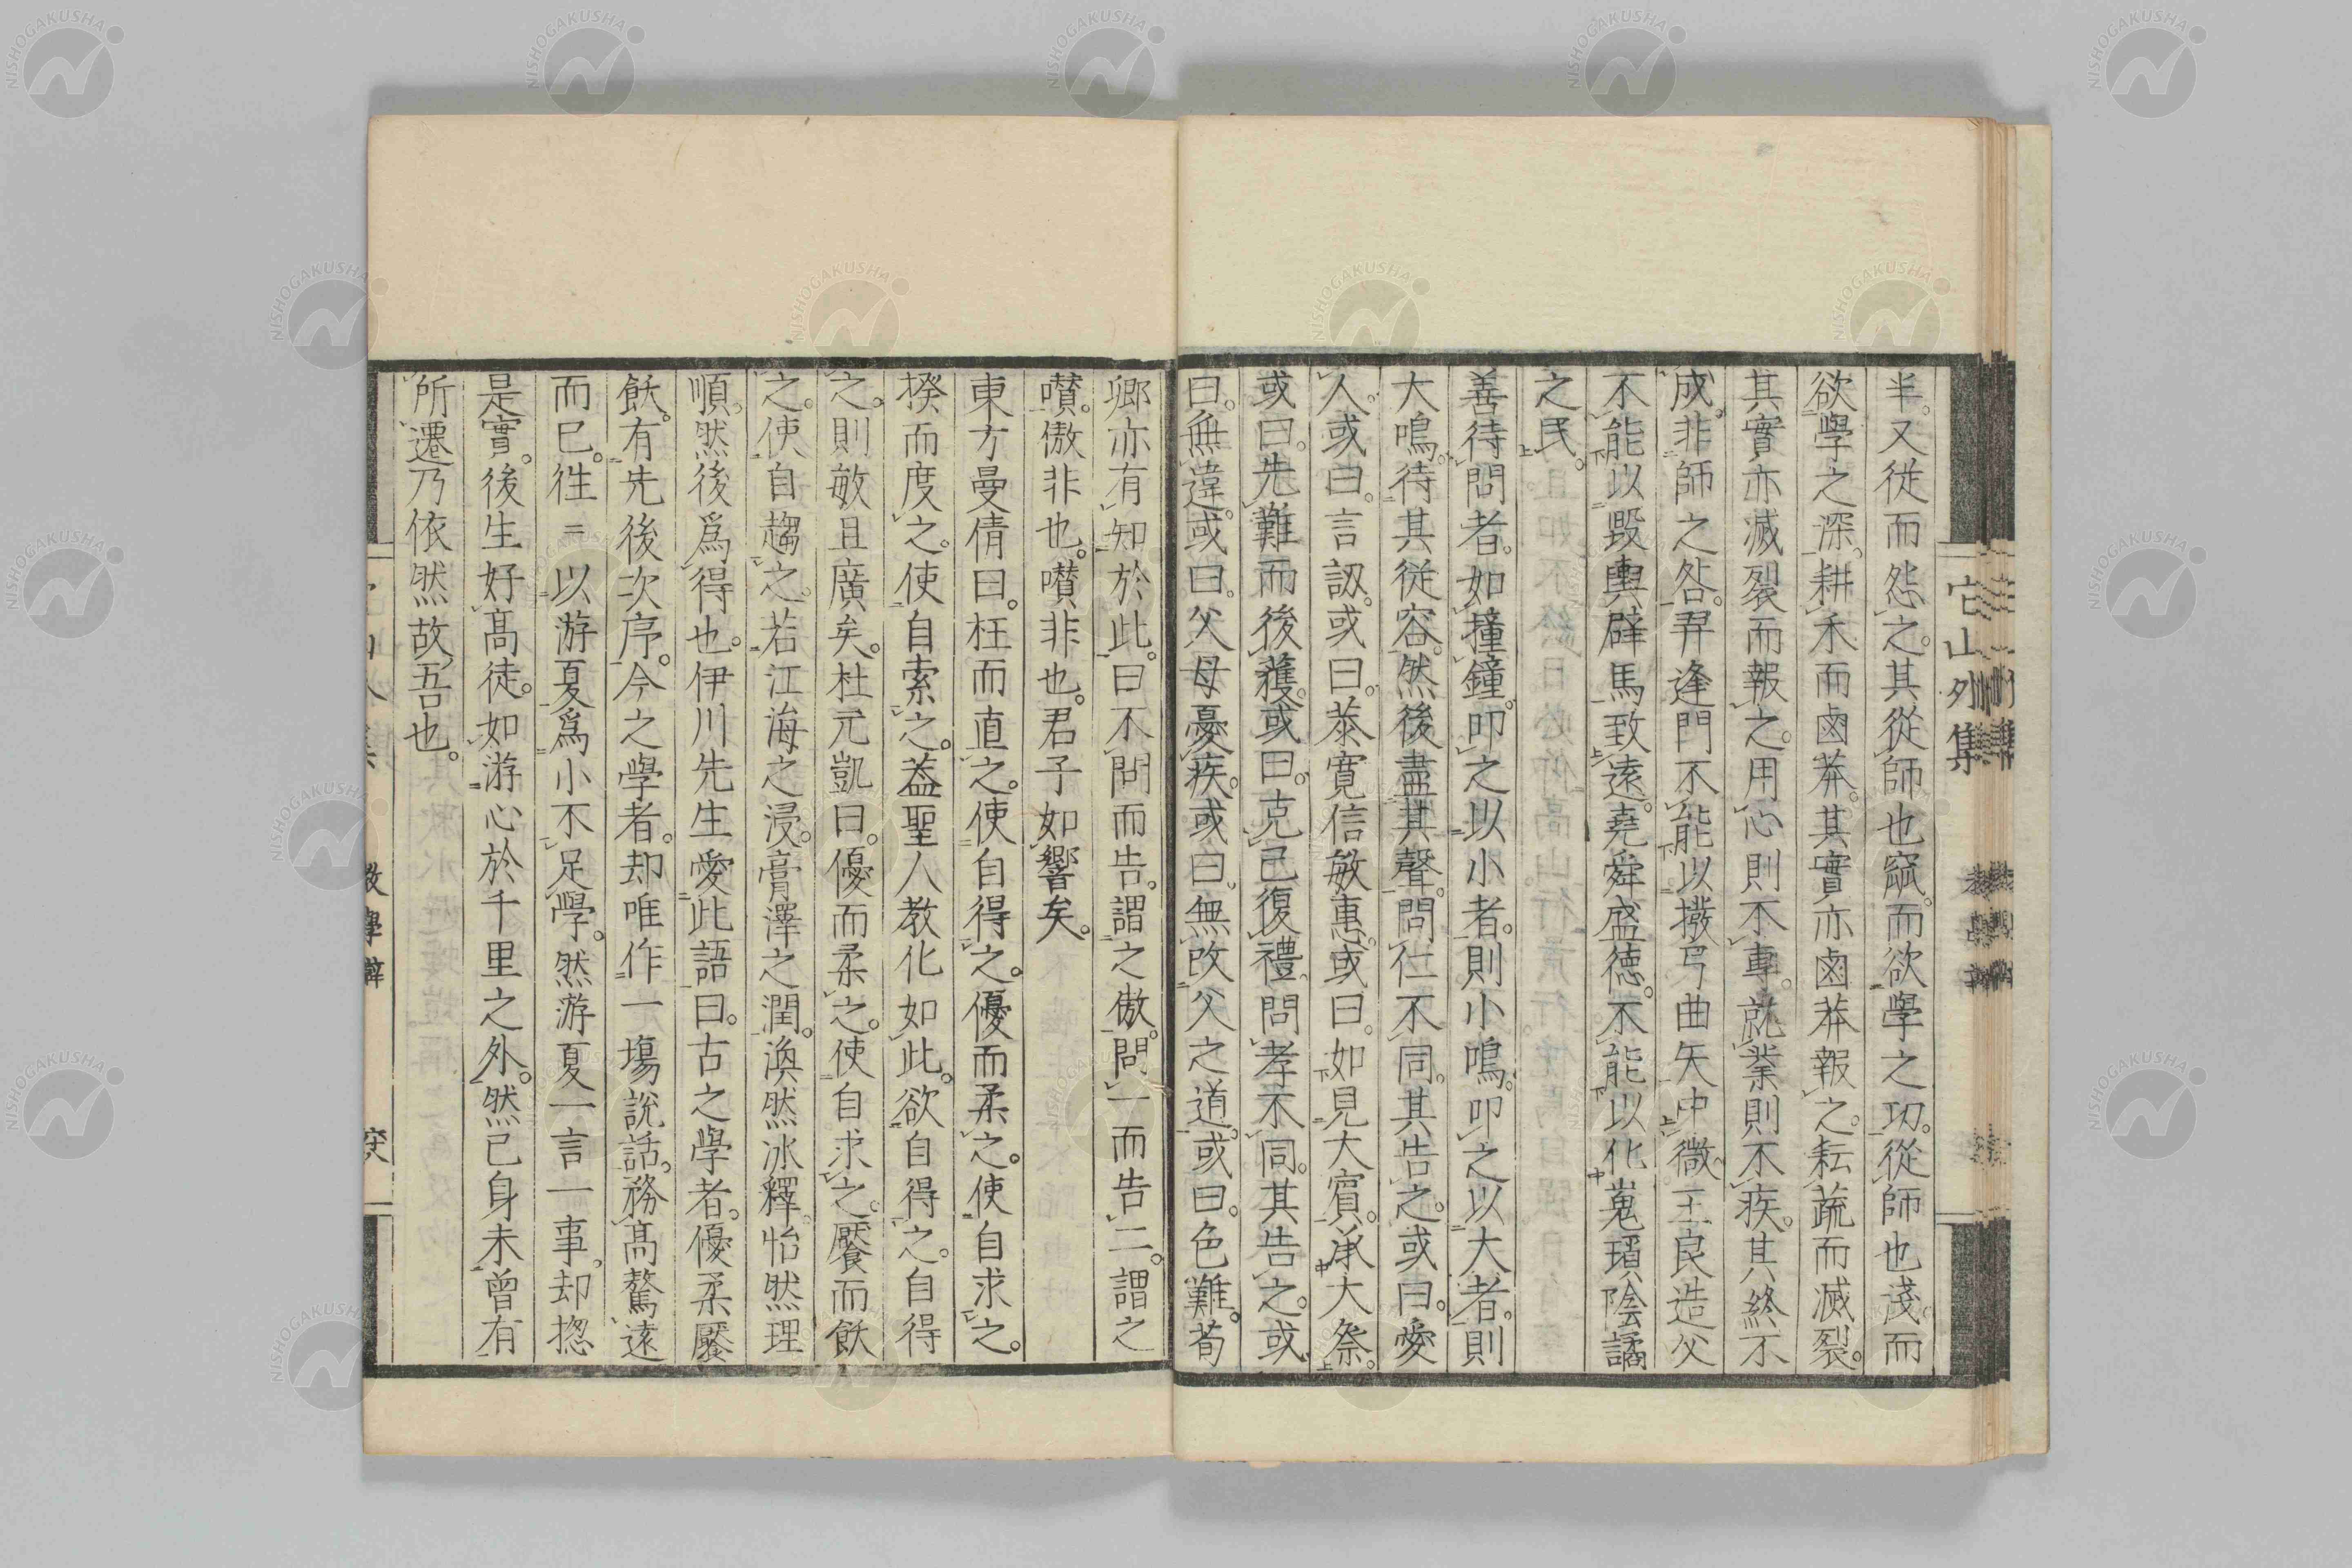 半。又従而怨之。其從師也窳。而欲學之功。從師也淺。而
欲學之深。耕禾而鹵莽。其實亦鹵莽報之。耘蔬而滅裂。
其實亦滅裂而報之。用心則不專。就業則不疾。其終不
成。非師之咎。羿逢門不能以撥弓曲矢中微。王良造父
不能以毀輿辟馬致遠。堯舜盛德。不能以化嵬瑣陰譎
之民。
善待問者。如撞鐘。叩之以小者。則小鳴。叩之以大者。則
大鳴。待其從容。然後盡其聲。問仁不同。其告之。或曰。愛
人。或曰。言訒。或曰。恭寛信敏惠。或曰。如見大賓。承大祭。
或曰。先難而後獲。或曰。克己復禮。問孝不同。其告之。或
曰。無違。或曰。父母憂疾。或曰。無改父之道。或曰。色難。荀
卿亦有知於此。曰不問而告。謂之傲。問一而告二。謂之
囋。傲非也。囋非也。君子如響矣。
東方曼倩曰。枉而直之。使自得之。優而柔之。使自求之。
揆而度之。使自索之。蓋聖人教化如此。欲自得之。自得
之。則敏且廣矣。杜元凱曰。優而柔之。使自求之。饜而飫
之。使自趨之。若江海之浸。膏澤之潤。渙然冰釋。怡然理
順。然後爲得也。伊川先生愛此語曰。古之學者。優柔饜
飫。有先後次序。今之學者。却唯作一場説話。務髙騖遠
而已。徃〻以游夏爲小不足學。然游夏一言一事。却揔
是實。後生好髙徒。如游心於千里之外。然已身未曾有
所遷乃依然故吾也。
它山外集
教學辭